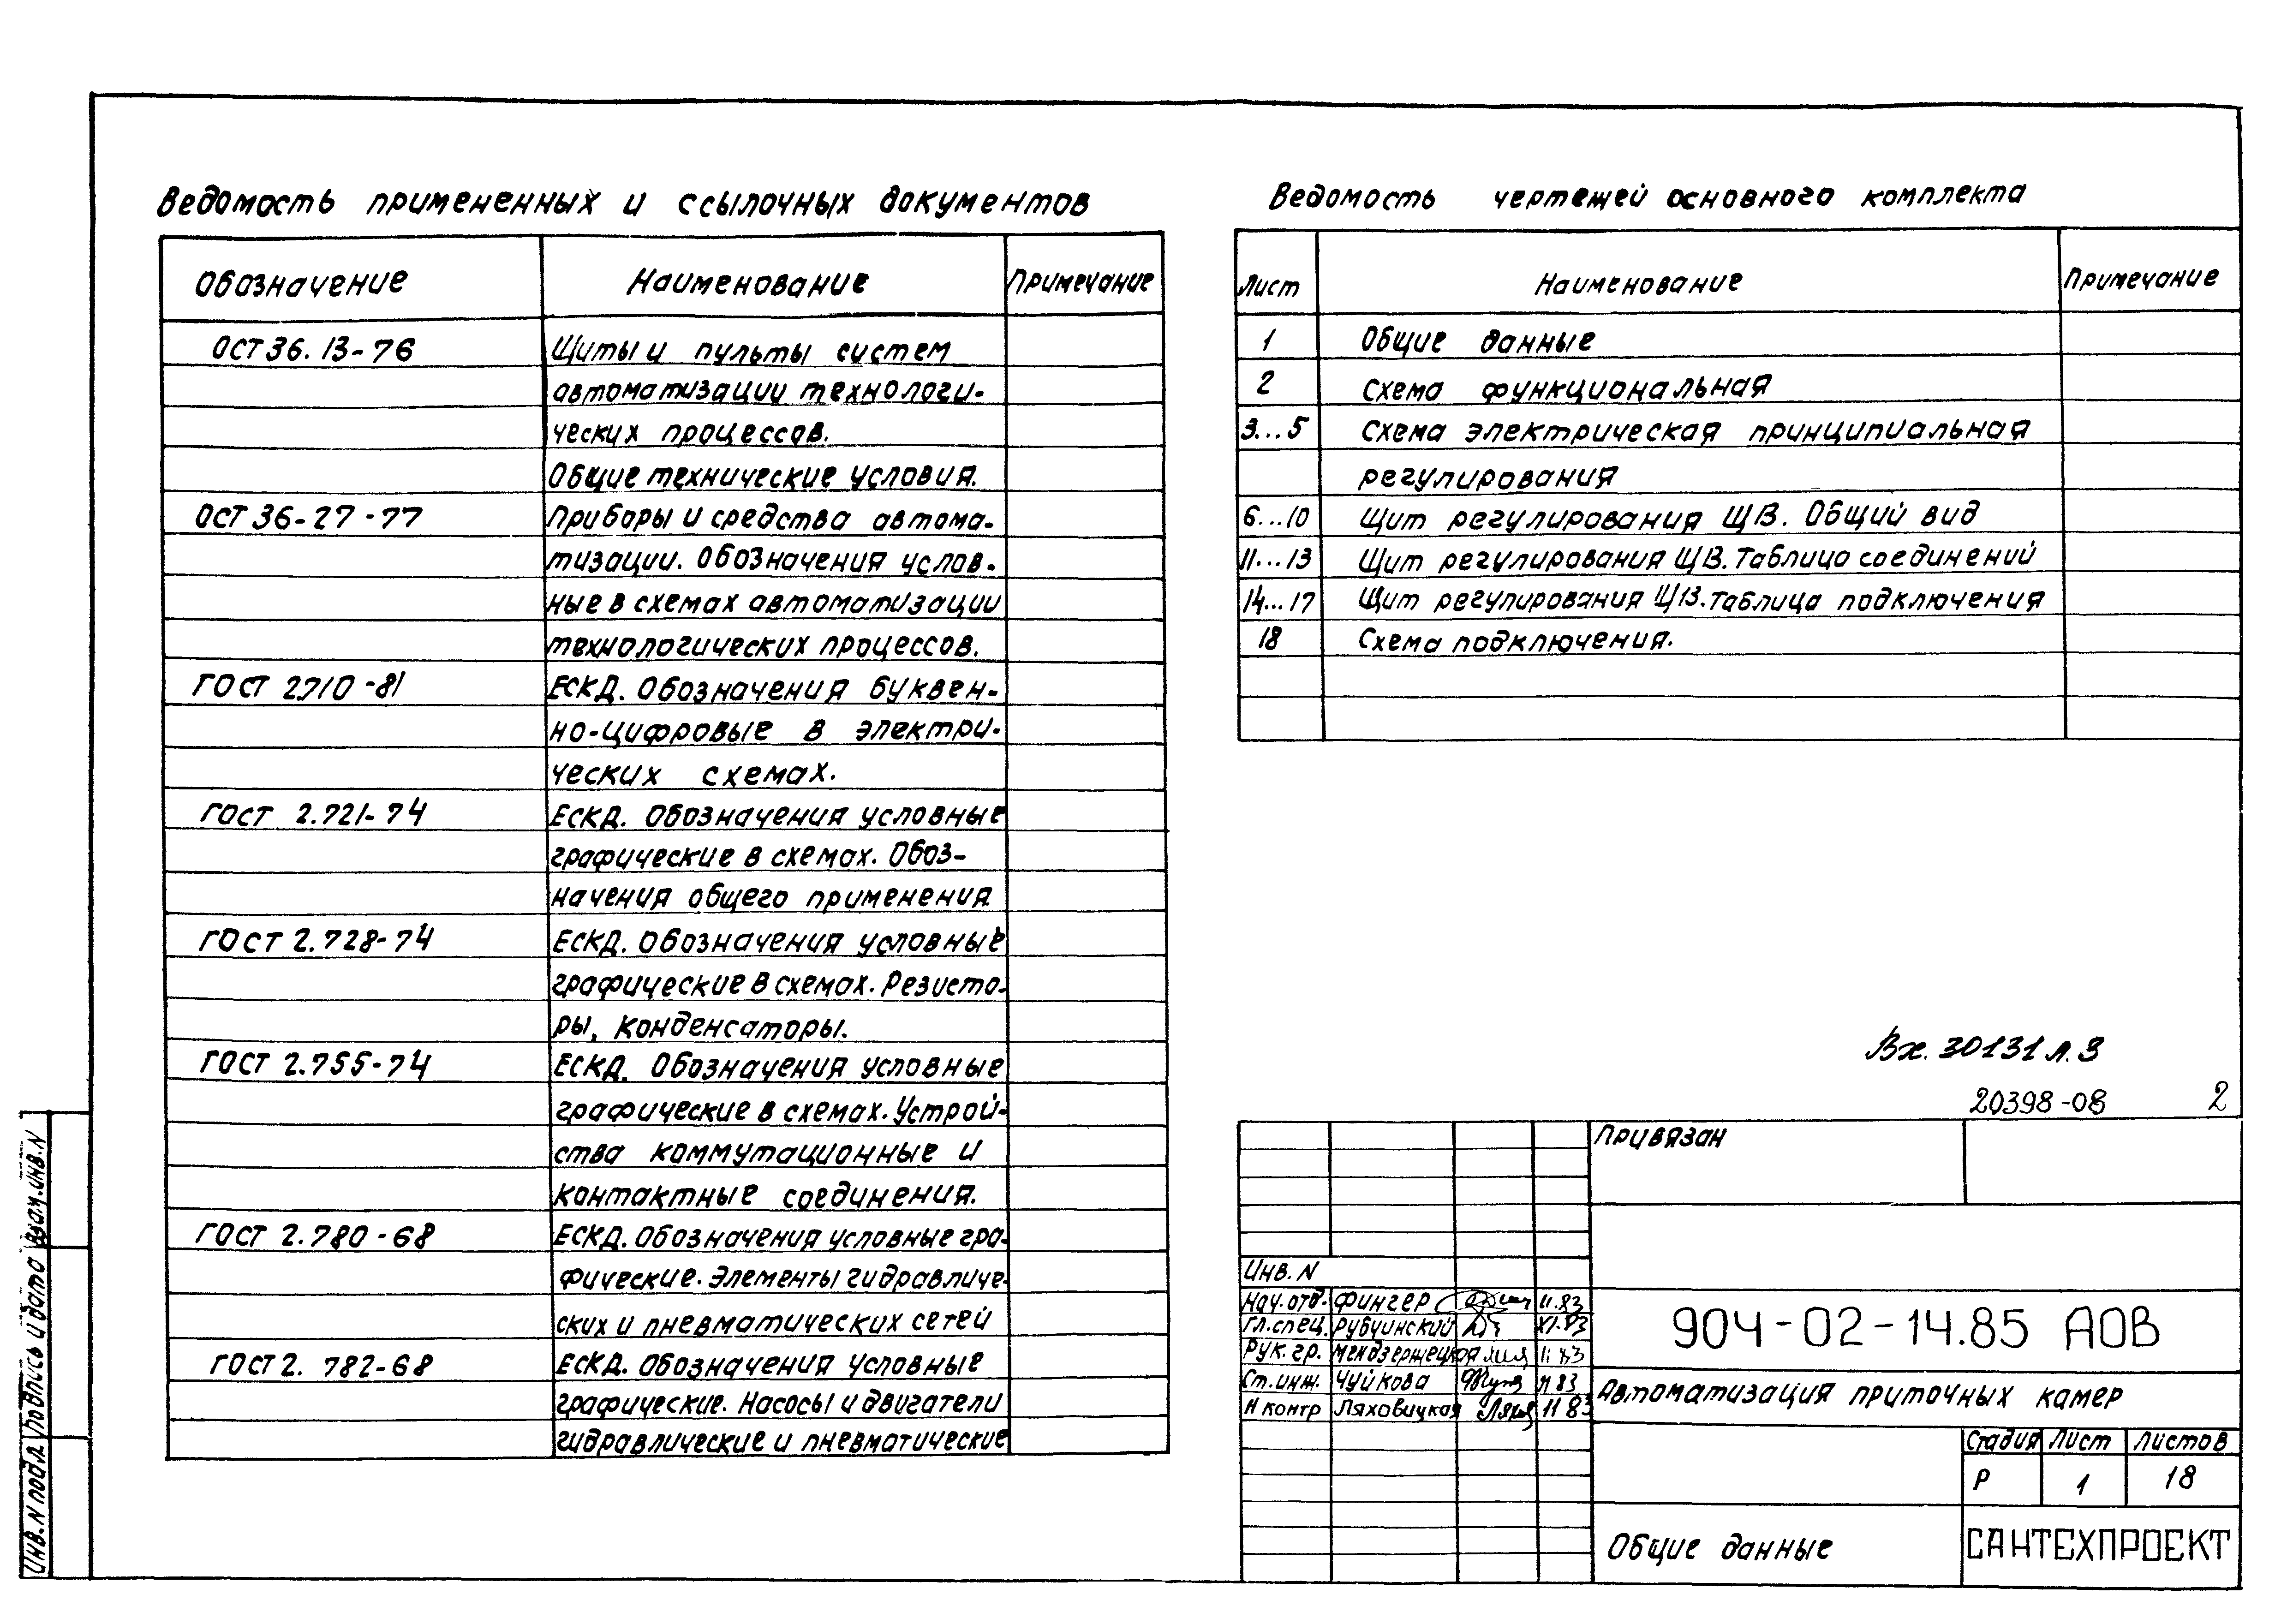 Ведомость примененных и ссылочных документов
Обозначение Наименование Примечание
ОСТ 36. 13-76 Щиты и пульты систем
автоматизации технологи-
ческих процессов.
Общие технические условия.
ОСТ 36-27-77 Приборы и средства автома-
тизации. Обозначения услов-
ные в схемах автоматизации
технологических процессов.
ГОСТ 2.710-81 ЕСКД. Обозначения буквен-
но-цифровые в электри-
ческих схемах.
ГОСТ 2.721-74 ЕСКД. Обозначения условные
графические в схемах. Обоз-
начения общего применения
ГОСТ 2.728-74 ЕСКД. Обозначения условные
графические в схемах. Резисто-
ры, конденсаторы.
ГОСТ 2.755-74 ЕСКД. Обозначения условные
графические в схемах. Устрой-
ства коммутационные и
контактные соединения.
ГОСТ 2.780-68 ЕСКД. Обозначения условные гра-
фические. Элементы гидравличе-
ских и пневматических сетей
ГОСТ 2. 782-68 ЕСКД. Обозначения условные
графические. Насосы и двигатели
гидравлические и пневматические
Ведомость чертежей основного комплекта
Лист Наименование Примечание
1 Общие данные
2 Схема функциональная
3...5 Схема электрическая принципиальная
регулирования
6...10 Щит регулирования ЩВ. Общий вид
11...13 Щит регулирования ЩВ. Таблица соединений
14...17 Щит регулирования ЩВ. Таблица подключения
18 Схема подключения.
Вх. 30131 л. 3
20398-08 2
Привязан
Инв. N
Нач. отд. Фингер 11.83
Гл. спец. Рубчинский XI.83
Рук. гр. Мендзержецкая 11 83
Ст. инж. Чуйкова 11 83
Н контр Ляховицкая 11 83
904-02-14.85 АОВ
Автоматизация приточных камер
Стадия Лист Листов
Р 1 18
Общие данные
САНТЕХПРОЕКТ
Инв. N подл Подпись и дата Взам. инв. N